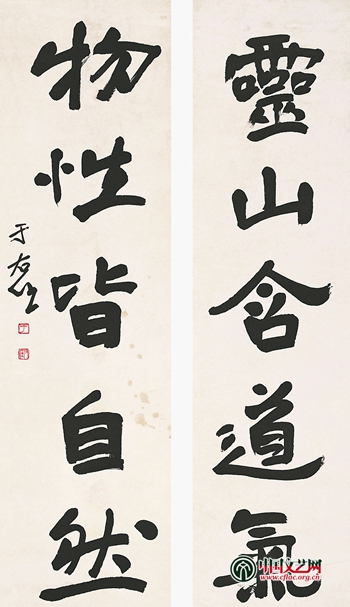 靈山含道氣
物性皆自然
于右任
中国文艺网
www.cflac.org.cn